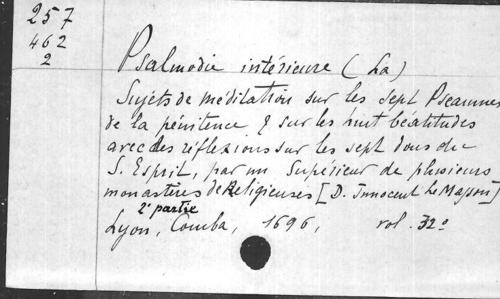 257
462
2
Psalmodie intérieure (La)
Sujets de méditation sur les sept Pseaumes
de la pénitence & sur les huit béatitudes
avec des réflexions sur les sept dons du
S. Esprit, par un Supérieur de plusieurs
monastères de Religieuses [D. Innocent Le Masson]
2e partie
Lyon, Comba, 1696, vol. 32o